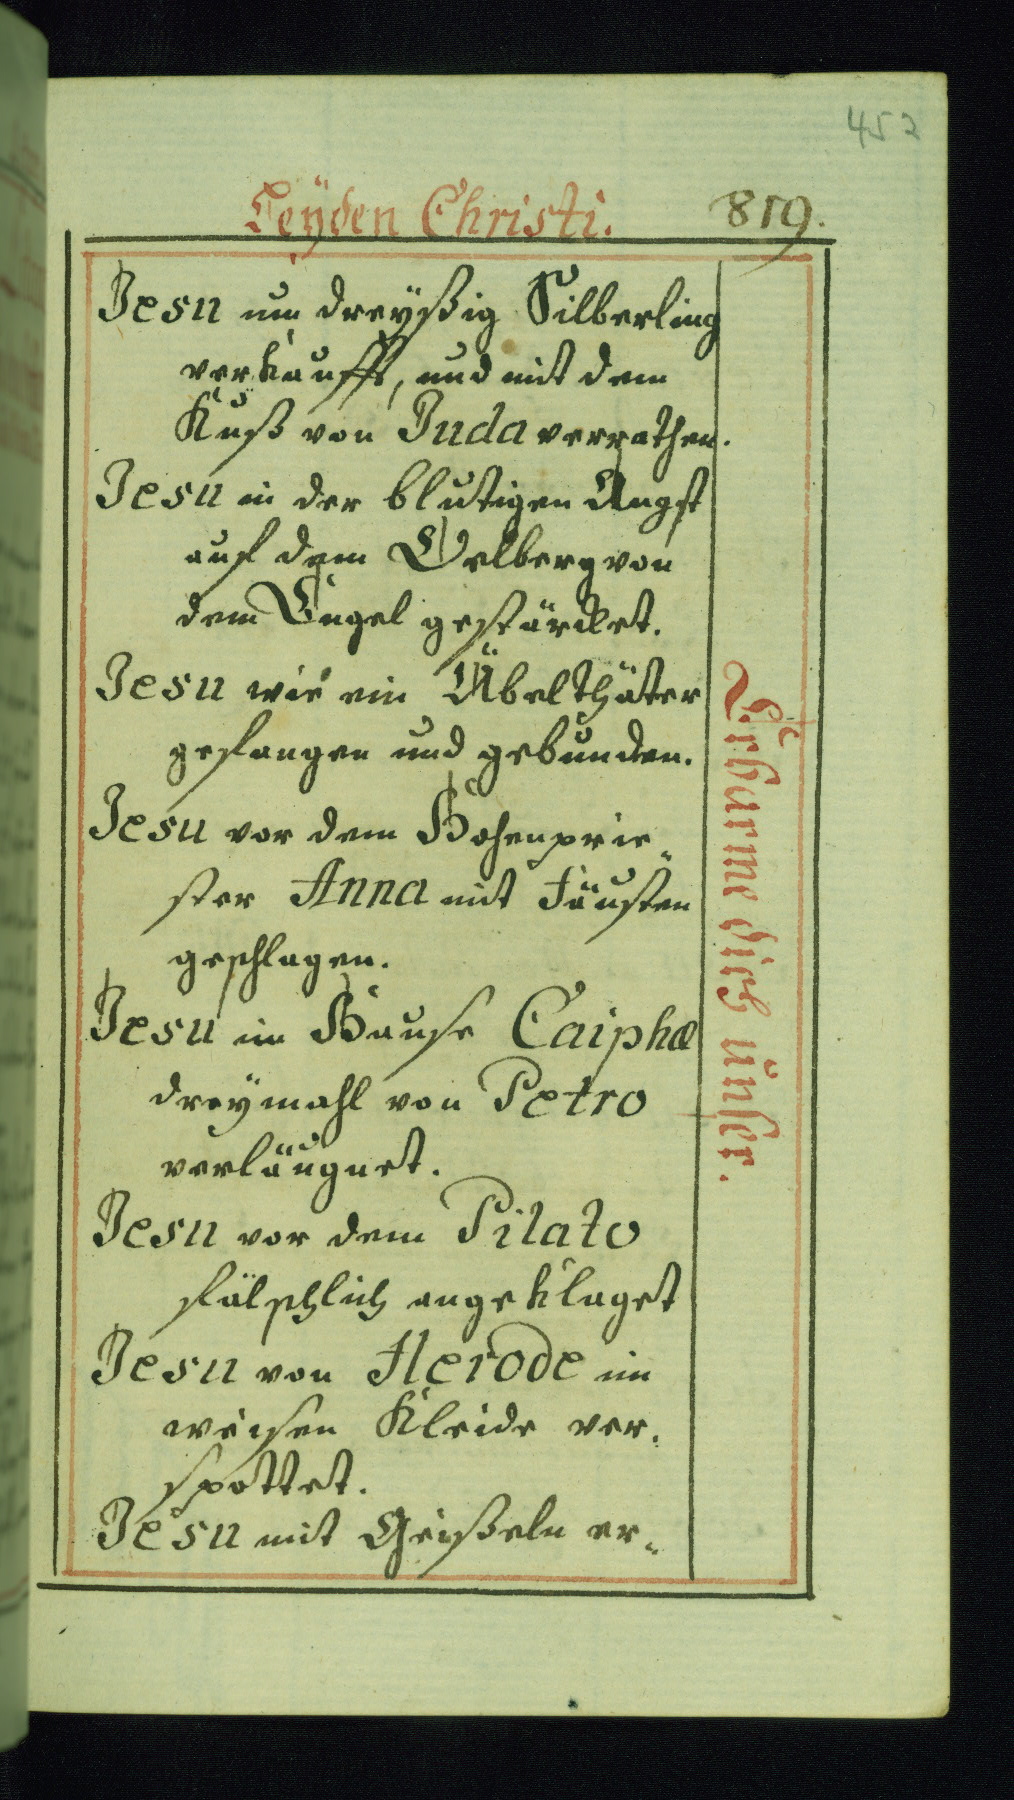 452
Leÿden Christi. 819.
Jesu um dreÿßig Silberling
verkaufft, und mit dem
Kuß von Juda verrathen.
Jesu in der blutigen Angst
auf dem Oelberg von
dem Engel gestärcket.
Jesu wie ein Übelthäter
gefangen und gebunden.
Jesu vor dem Hohenprie„
ster Anna mit Fäusten
geschlagen.
Jesu im Hause Caiphæ
dreÿmahl von Petro
verläugnet.
Jesu vor dem Pilato
fälschlich angeklaget
Jesu von Herode im
weisen Kleide ver„
spottet.
Jesu mit Geißeln er„
Erbarme dich unser.